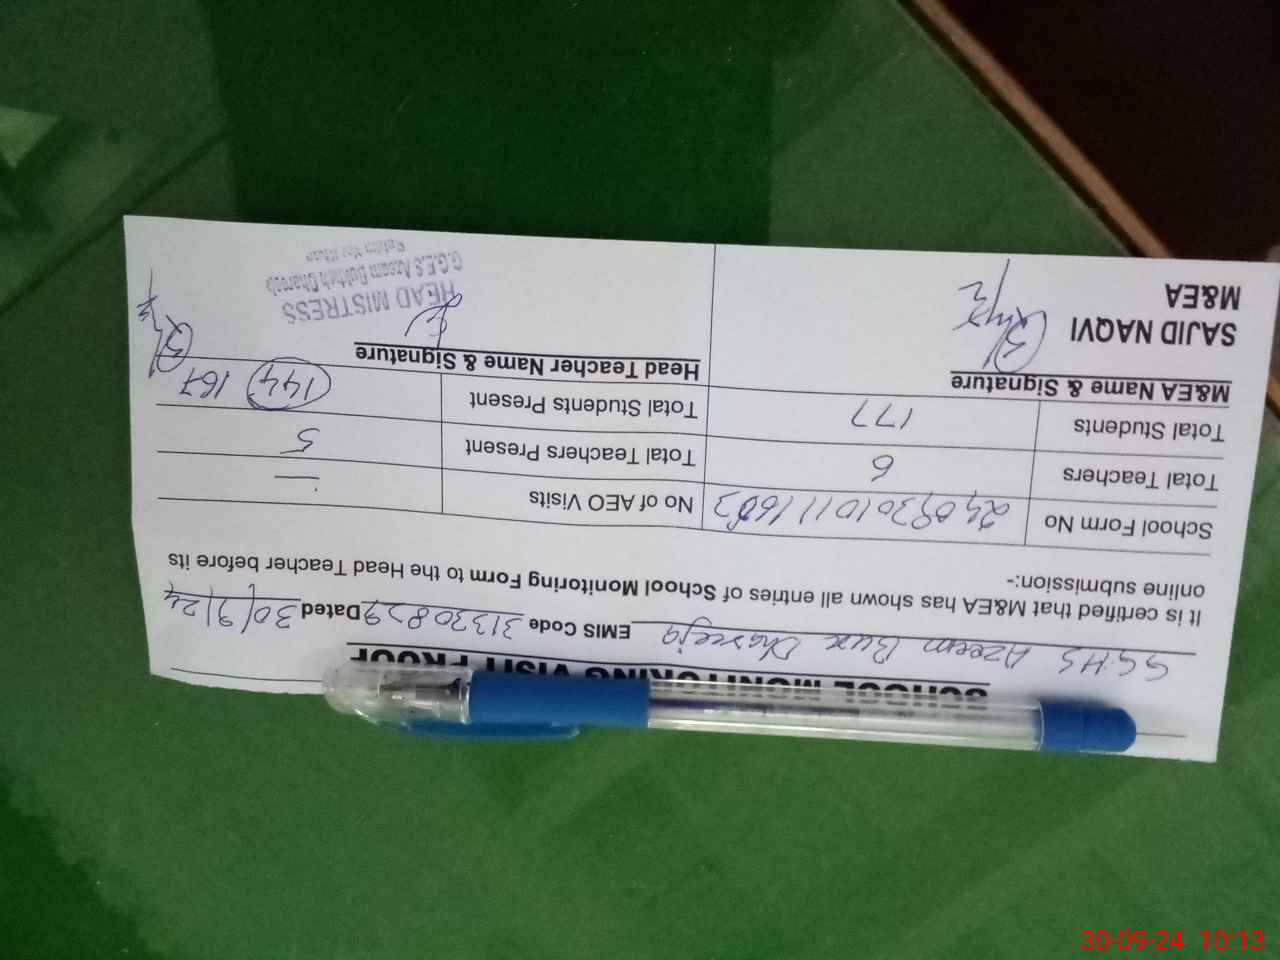 SCHOOL MONITORING VISIT PROOF
GGHS Azeem Bux Dhareeja EMIS Code 31330829 Dated 30/9/24
It is certified that M&EA has shown all entries of School Monitoring Form to the Head Teacher before its
online submission:-
School Form No No of AEO Visits —
Total Teachers 6 Total Teachers Present 5
Total Students 177 Total Students Present 144 167
M&EA Name & Signature Head Teacher Name & Signature
SAJID NAQVI
M&EA
HEAD MISTRESS
G.G.E.S Azeem Bukhsh Dhareeja
Rahim Yar Khan
30-09-24 10:13